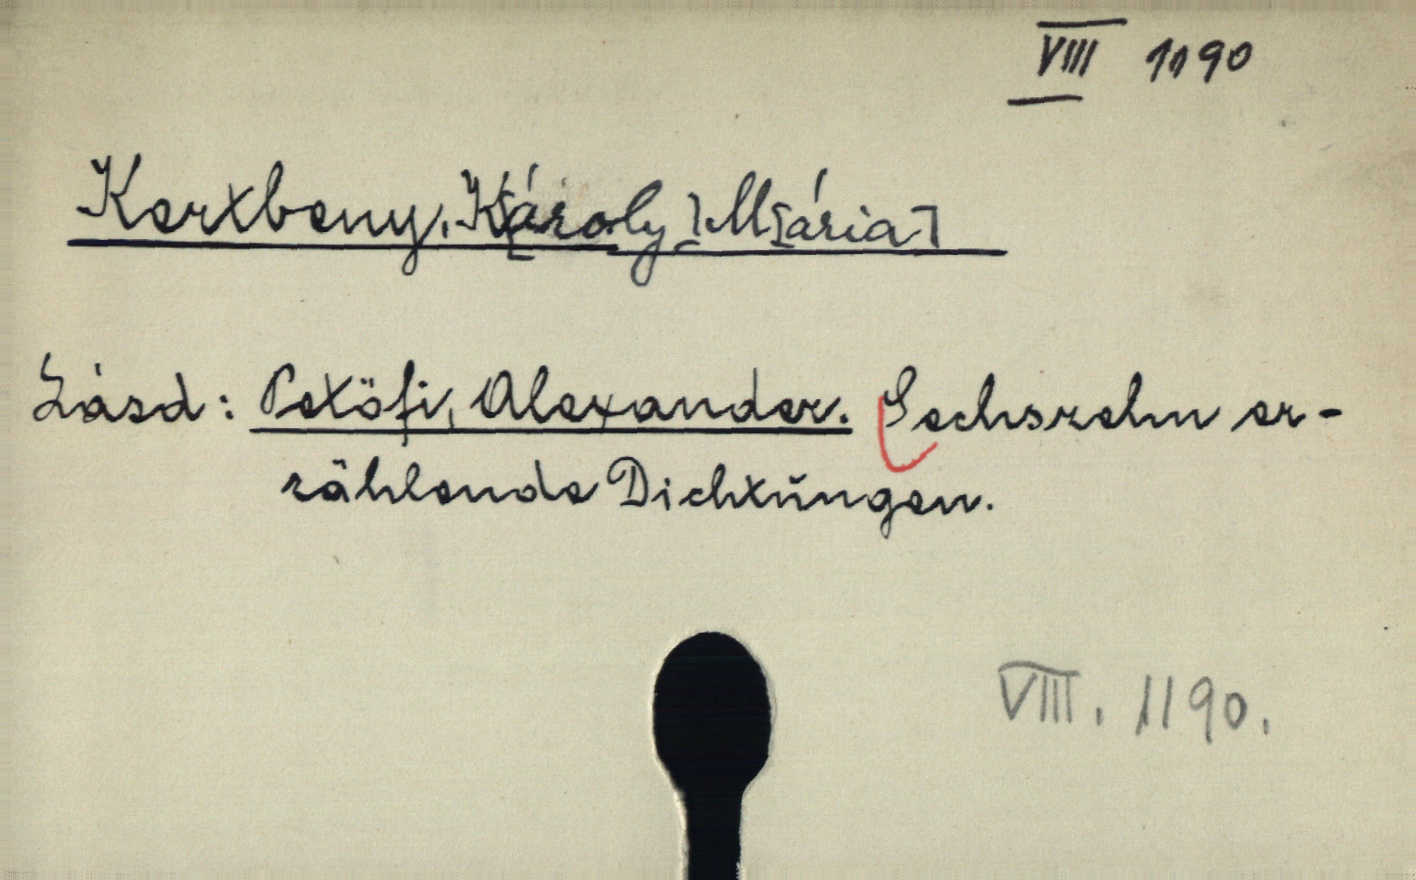 VIII 1190
Kertbeny, K[ároly] M[ária]
Lásd: Petöfi, Alexander. Sechszehn er-
zählende Dichtŭngen.
VIII. 1190.